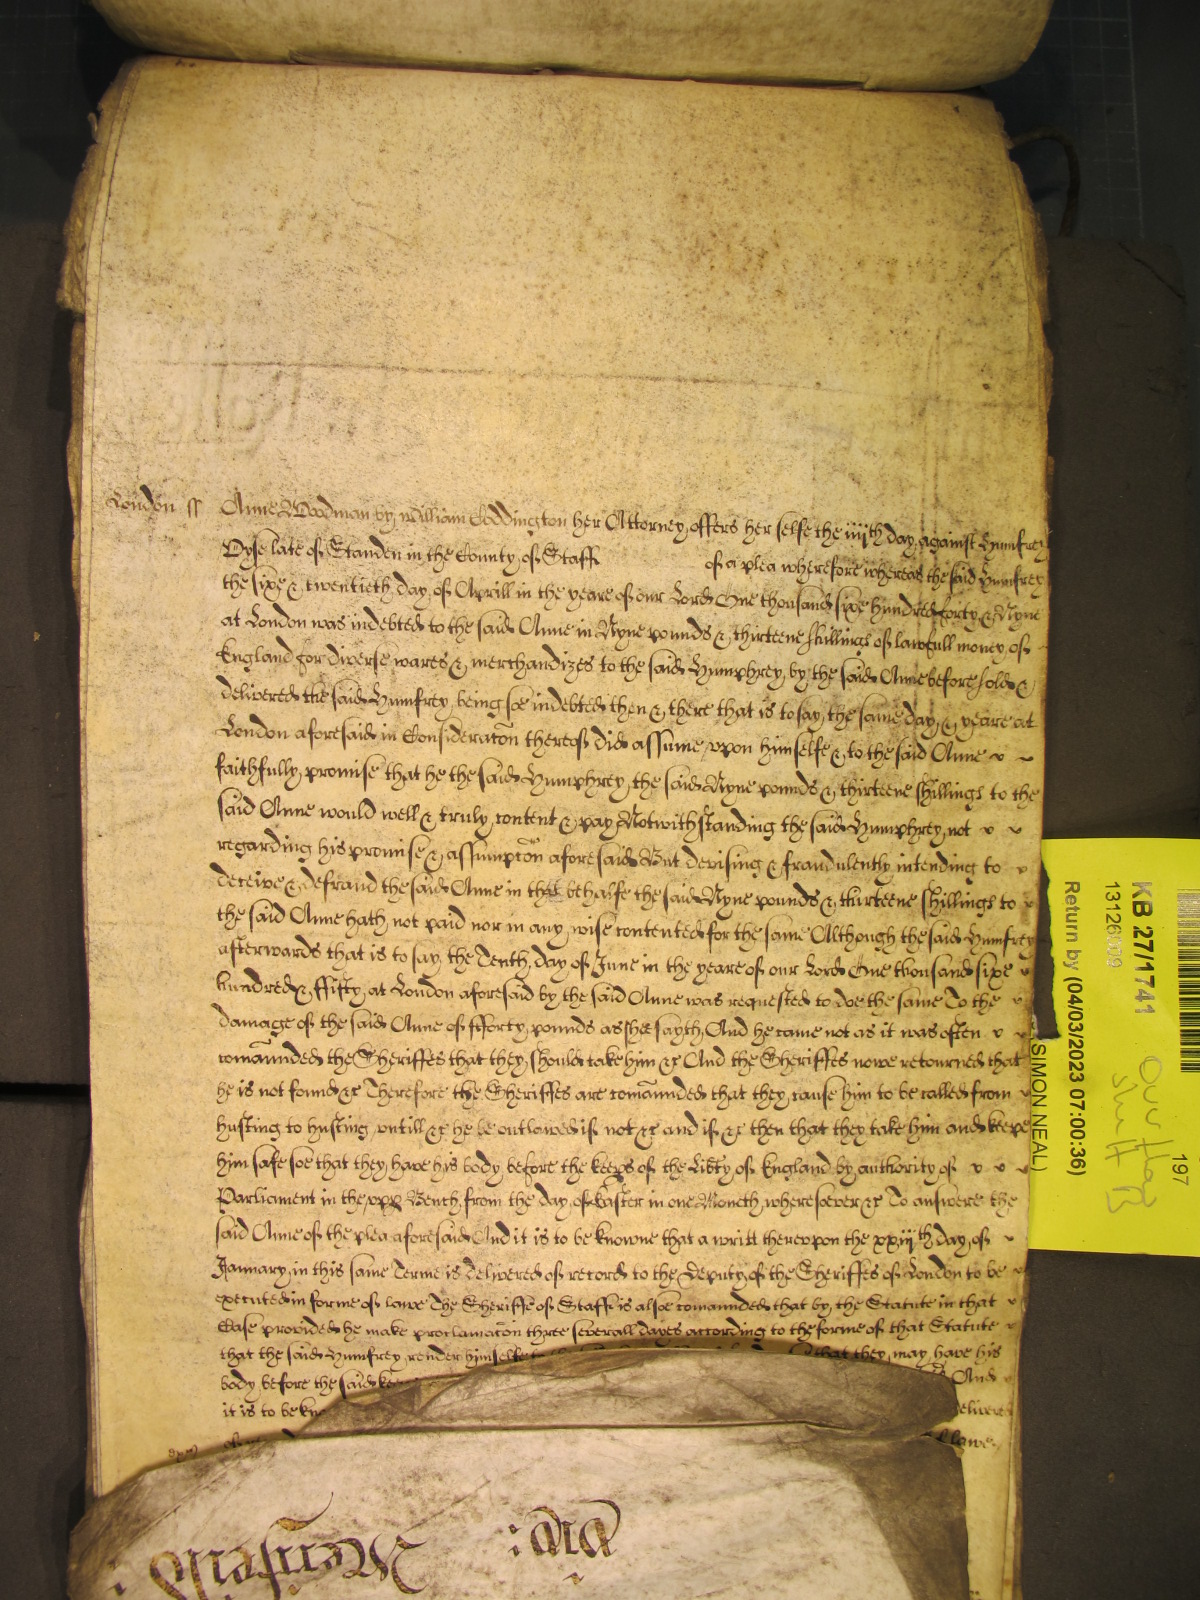 London ss Anne Woodman by William Coddington her Attorney offers her selfe the iiijth day against Humfrey
Dyse late of Standen in the County of Staff of a plea wherefore whereas the said Humfrey
the sixe & twentieth day of Aprill in the yeare of our Lord One thousand sixe hundred forty & Nyne
at London was indebted to the said Anne in Nyne pounds & thirteene shillings of lawfull money of
England for diverse wares & merchandizes to the said Humphrey by the said Anne before sold &
delivered the said Humfrey being soe indebted then & there that is to say the same day & yeare at
London aforesaid in Consideracon thereof did assume upon himselfe & to the said Anne
faithfully promise that he the said Humphrey the said Nyne pounds & thirteene shillings to the
said Anne would well & truly content & pay Notwithstanding the said Humphrey not
regarding his promise & assumpcon aforesaid But devising & fraudulently intending to
deceive & defraud the said Anne in that behalfe the said Nyne pounds & thirteene shillings to
the said Anne hath not paid nor in any wise contented for the same Although the said Humfrey
afterwards that is to say the Tenth day of June in the yeare of our Lord One thousand sixe
hundred & ffifty at London aforesaid by the said Anne was requested to doe the same To the
damage of the said Anne of fforty pounds as she sayth And he came not as it was often
comaunded the Sheriffes that they should take him &c And the Sheriffes nowe retourned that
he is not found &c Therefore the Sheriffes are comaunded that they cause him to be called from
husting to husting untill &c he be outlawed if not &c and if &c then that they take him and keepe
him safe soe that they have his body before the keeps of the Libty of England by authority of
Parliament in the upp Bench from the day of Easter in one Moneth wheresoever &c To answere the
said Anne of the plea aforesaid And it is to be knowne that a writt thereupon the xxiijth day of
January in this same Terme is delivered of record to the Deputy of the Sheriffes of London to be
executed in forme of lawe The Sheriffe of Staff is alsoe comaunded that by the Statute in that
Case provided he make proclamacon three severall dayes according to the forme of that Statute
that the said Humfrey render himselfe that they may have his
body before the said And
it is to be
lawe
KB 27/1741
13126
Return by (04/03/2023 07:00:36)
(SIMON NEAL)
197